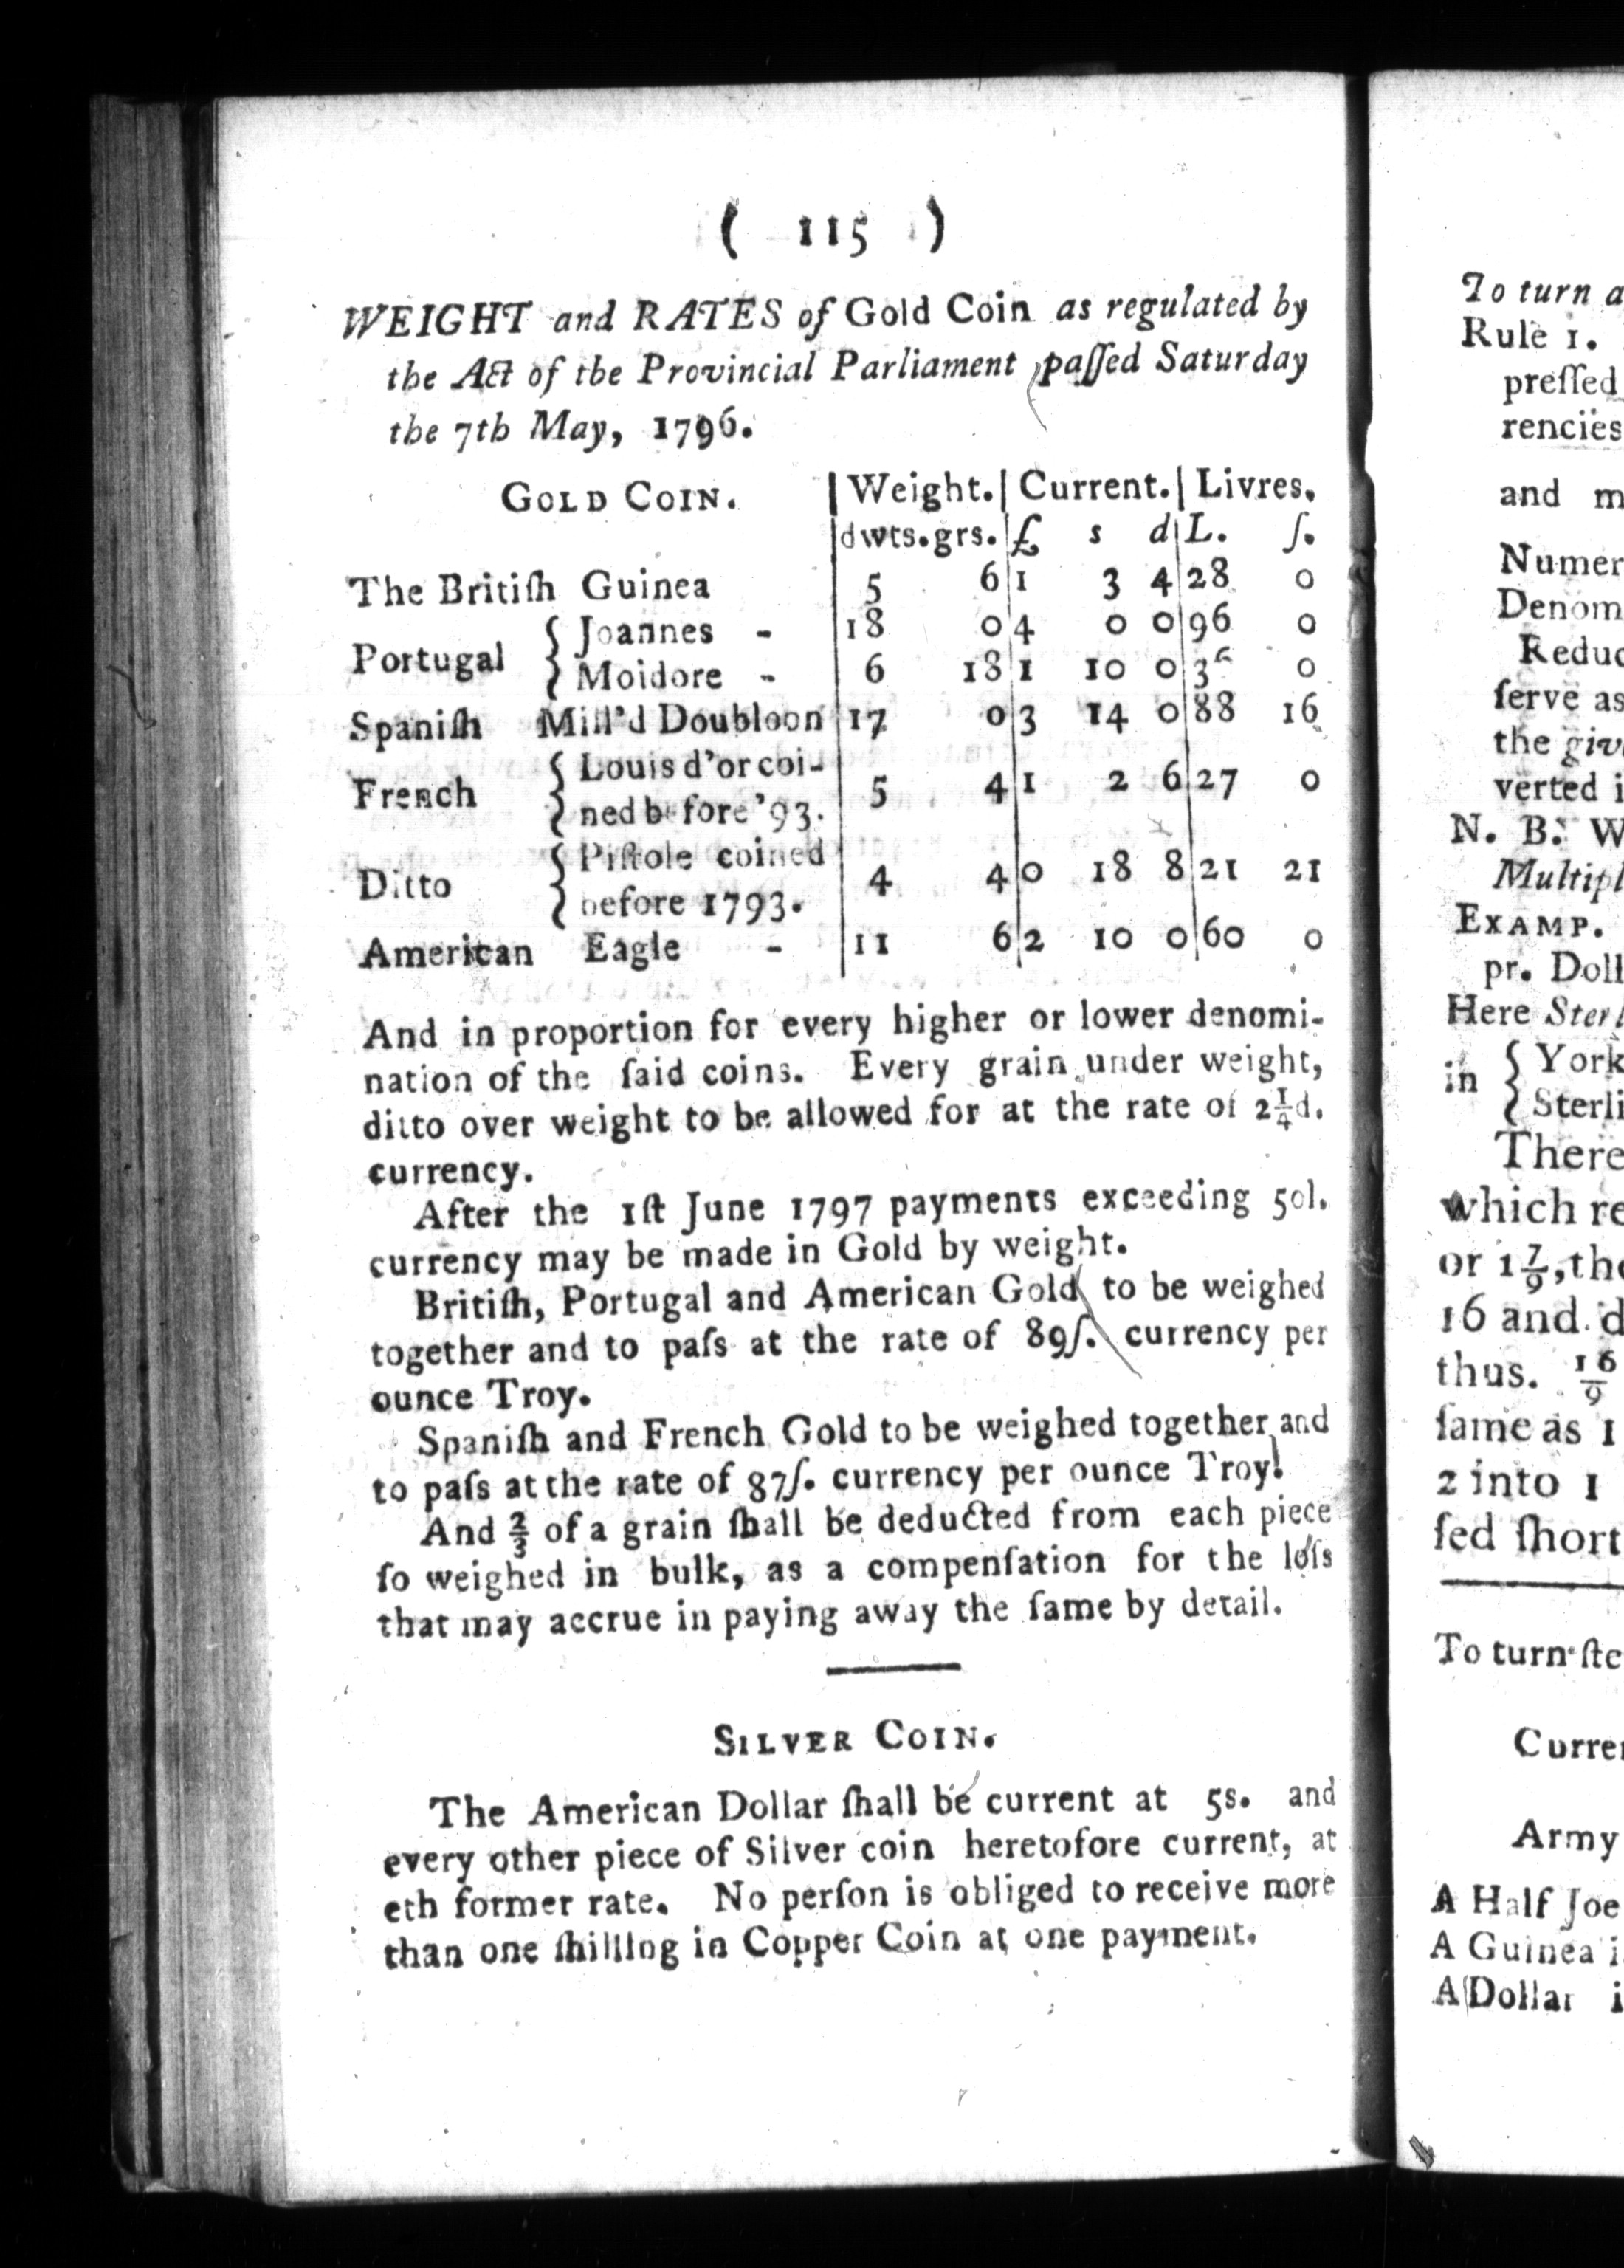 ( 115 )
WEIGHT and RATES of Gold Coin as regulated by
the Act of the Provincial Parliament paſſed Saturday
the 7th May, 1796.
GOLD COIN. | Weight. | Current. | Livres.
dwts. grs. | £ s d | L. ſ.
The Britiſh Guinea 5 6 | 1 3 4 | 28 0
Portugal { Joannes - 18 0 | 4 0 0 | 96 0
{ Moidore - 6 18 | 1 10 0 | 36 0
Spaniſh Mill'd Doubloon 17 0 | 3 14 0 | 88 16
French { Louis d'or coi-
ned before '93. 5 4 | 1 2 6 | 27 0
Ditto { Piſtole coined
before 1793. 4 4 | 0 18 8 | 21 21
American Eagle - 11 6 | 2 10 0 | 60 0
And in proportion for every higher or lower denomi-
nation of the ſaid coins. Every grain under weight,
ditto over weight to be allowed for at the rate of 2¼d.
currency.
After the 1ſt June 1797 payments exceeding 50l.
currency may be made in Gold by weight.
Britiſh, Portugal and American Gold to be weighed
together and to paſs at the rate of 89ſ. currency per
ounce Troy.
Spaniſh and French Gold to be weighed together and
to paſs at the rate of 87ſ. currency per ounce Troy.
And ⅔ of a grain ſhall be deducted from each piece
ſo weighed in bulk, as a compenſation for the loſs
that may accrue in paying away the ſame by detail.
SILVER COIN.
The American Dollar ſhall be current at 5s. and
every other piece of Silver coin heretofore current, at
eth former rate. No perſon is obliged to receive more
than one ſhilllng in Copper Coin at one payment.
To turn
Rule 1.
preſſed
rencies
and
Numer
Denom
Reduc
ſerve as
the giv
verted
N. B. W
Multipl
EXAMP.
pr. Doll
Here Sterl
in { York
{ Sterli
There
which re
or 1 7/9, the
16 and d
thus. 16/9
ſame as 1
2 into 1
ſed ſhort
To turn ſte
Curre
Army
A Half Joe
A Guinea
A Dollar